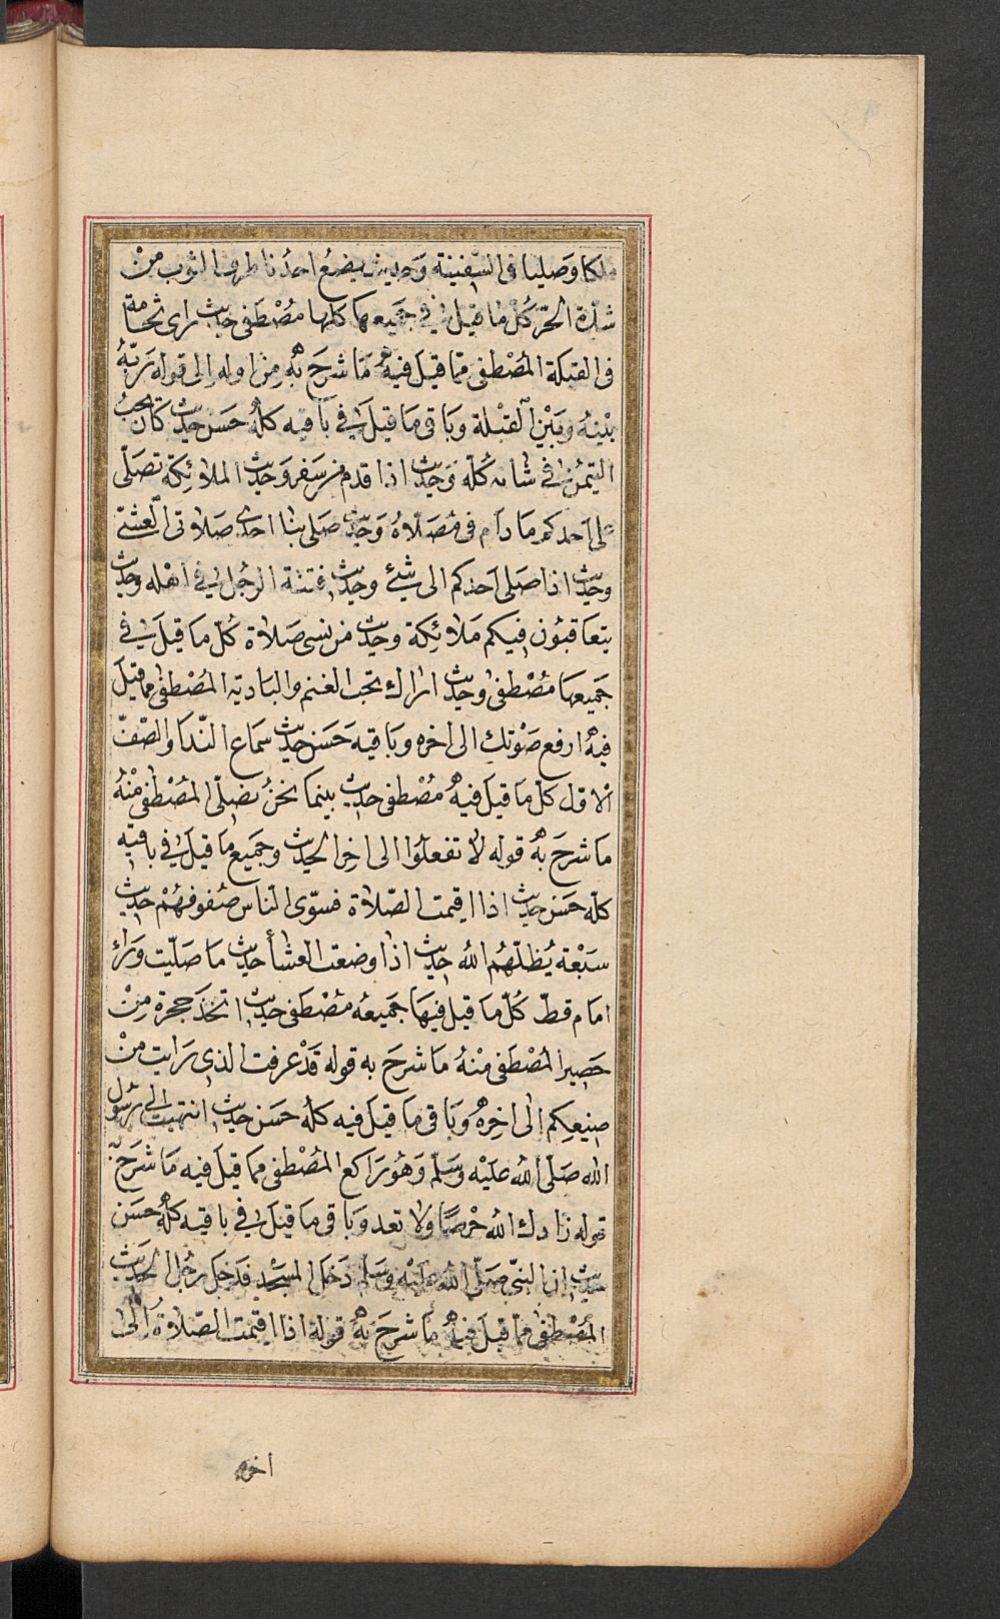 ملكا وصليا في السفينة وحديث يضع احدنا طرف الثوب من
شدّة الحرّ كل ما قيل في جميعها كلها مصطفى حديث راى نخامة
في القبلة المصطفى مما قيل فيه ما شرح به من اوله الى قوله ربّه
بينه وبين القبلة وباقي ما قيل في باقيه كله حسن حديث كان يحب
التيمّن في شانه كلّه وحديث اذا قدم من سفر وحديث الملائكة تصلّى
على احدكم ما دام في مصلّاه وحديث صلى بنا احدى صلاتي العشىّ
وحديث اذا صلى احدكم الى شئ وحديث فتنة الرجل في اهله وحديث
يتعاقبون فيكم ملائكة وحديث من نسى صلاة كل ما قيل في
جميعها مصطفى وحديث اراك تحب الغنم والبادية المصطفى مما قيل
فيه ارفع صوتك الى اخره وباقيه حسن حديث سماع الندا والصّفّ
الاول كل ما قيل فيه مصطفى حديث بينما نحن نصلّى المصطفى منه
ما شرح به قوله لا تفعلوا الى اخر الحديث وجميع ما قيل في باقيه
كلّه حسن حديث اذا اقيمت الصّلاة فسوّى الناس صفوفهم حديث
سبعة يظلّهم الله حديث اذا وضعت العشأ حديث ما صلّيت وراء
امام قطّ كل ما قيل فيها جميعه مصطفى حديث اتخذ حجرة من
حصير المصطفى منه ما شرح به قوله قد عرفت الذى رايت من
صنيعكم الى اخره وباقي ما قيل فيه كله حسن حديث انتهيت الى رسول
الله صلّى الله عليه وسلّم وهو راكع المصطفى مما قيل فيه ما شرح به
قوله زادك الله حرصًا ولا تعد وباقي ما قيل في باقيه كله حسن
حديث ان النبيّ صلّى الله عليه وسلّم دخل المسجد فدخل رجل الحديث
المصطفى مما قيل فيه ما شرح به قوله اذا اقيمت الصّلاة الى
اخره